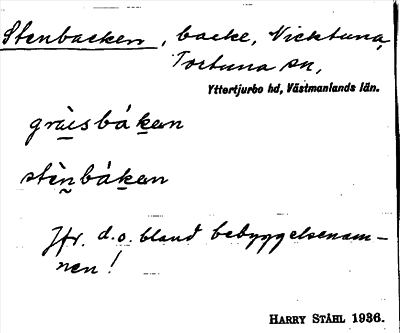 Stenbacken, backe, Nicktuna,
Tortuna sn,
Yttertjurbo hd, Västmanlands län.
gràisbáken
stèn̬báken
Jfr. d.o. bland bebyggelsenam-
nen!
HARRY STÅHL 1936.